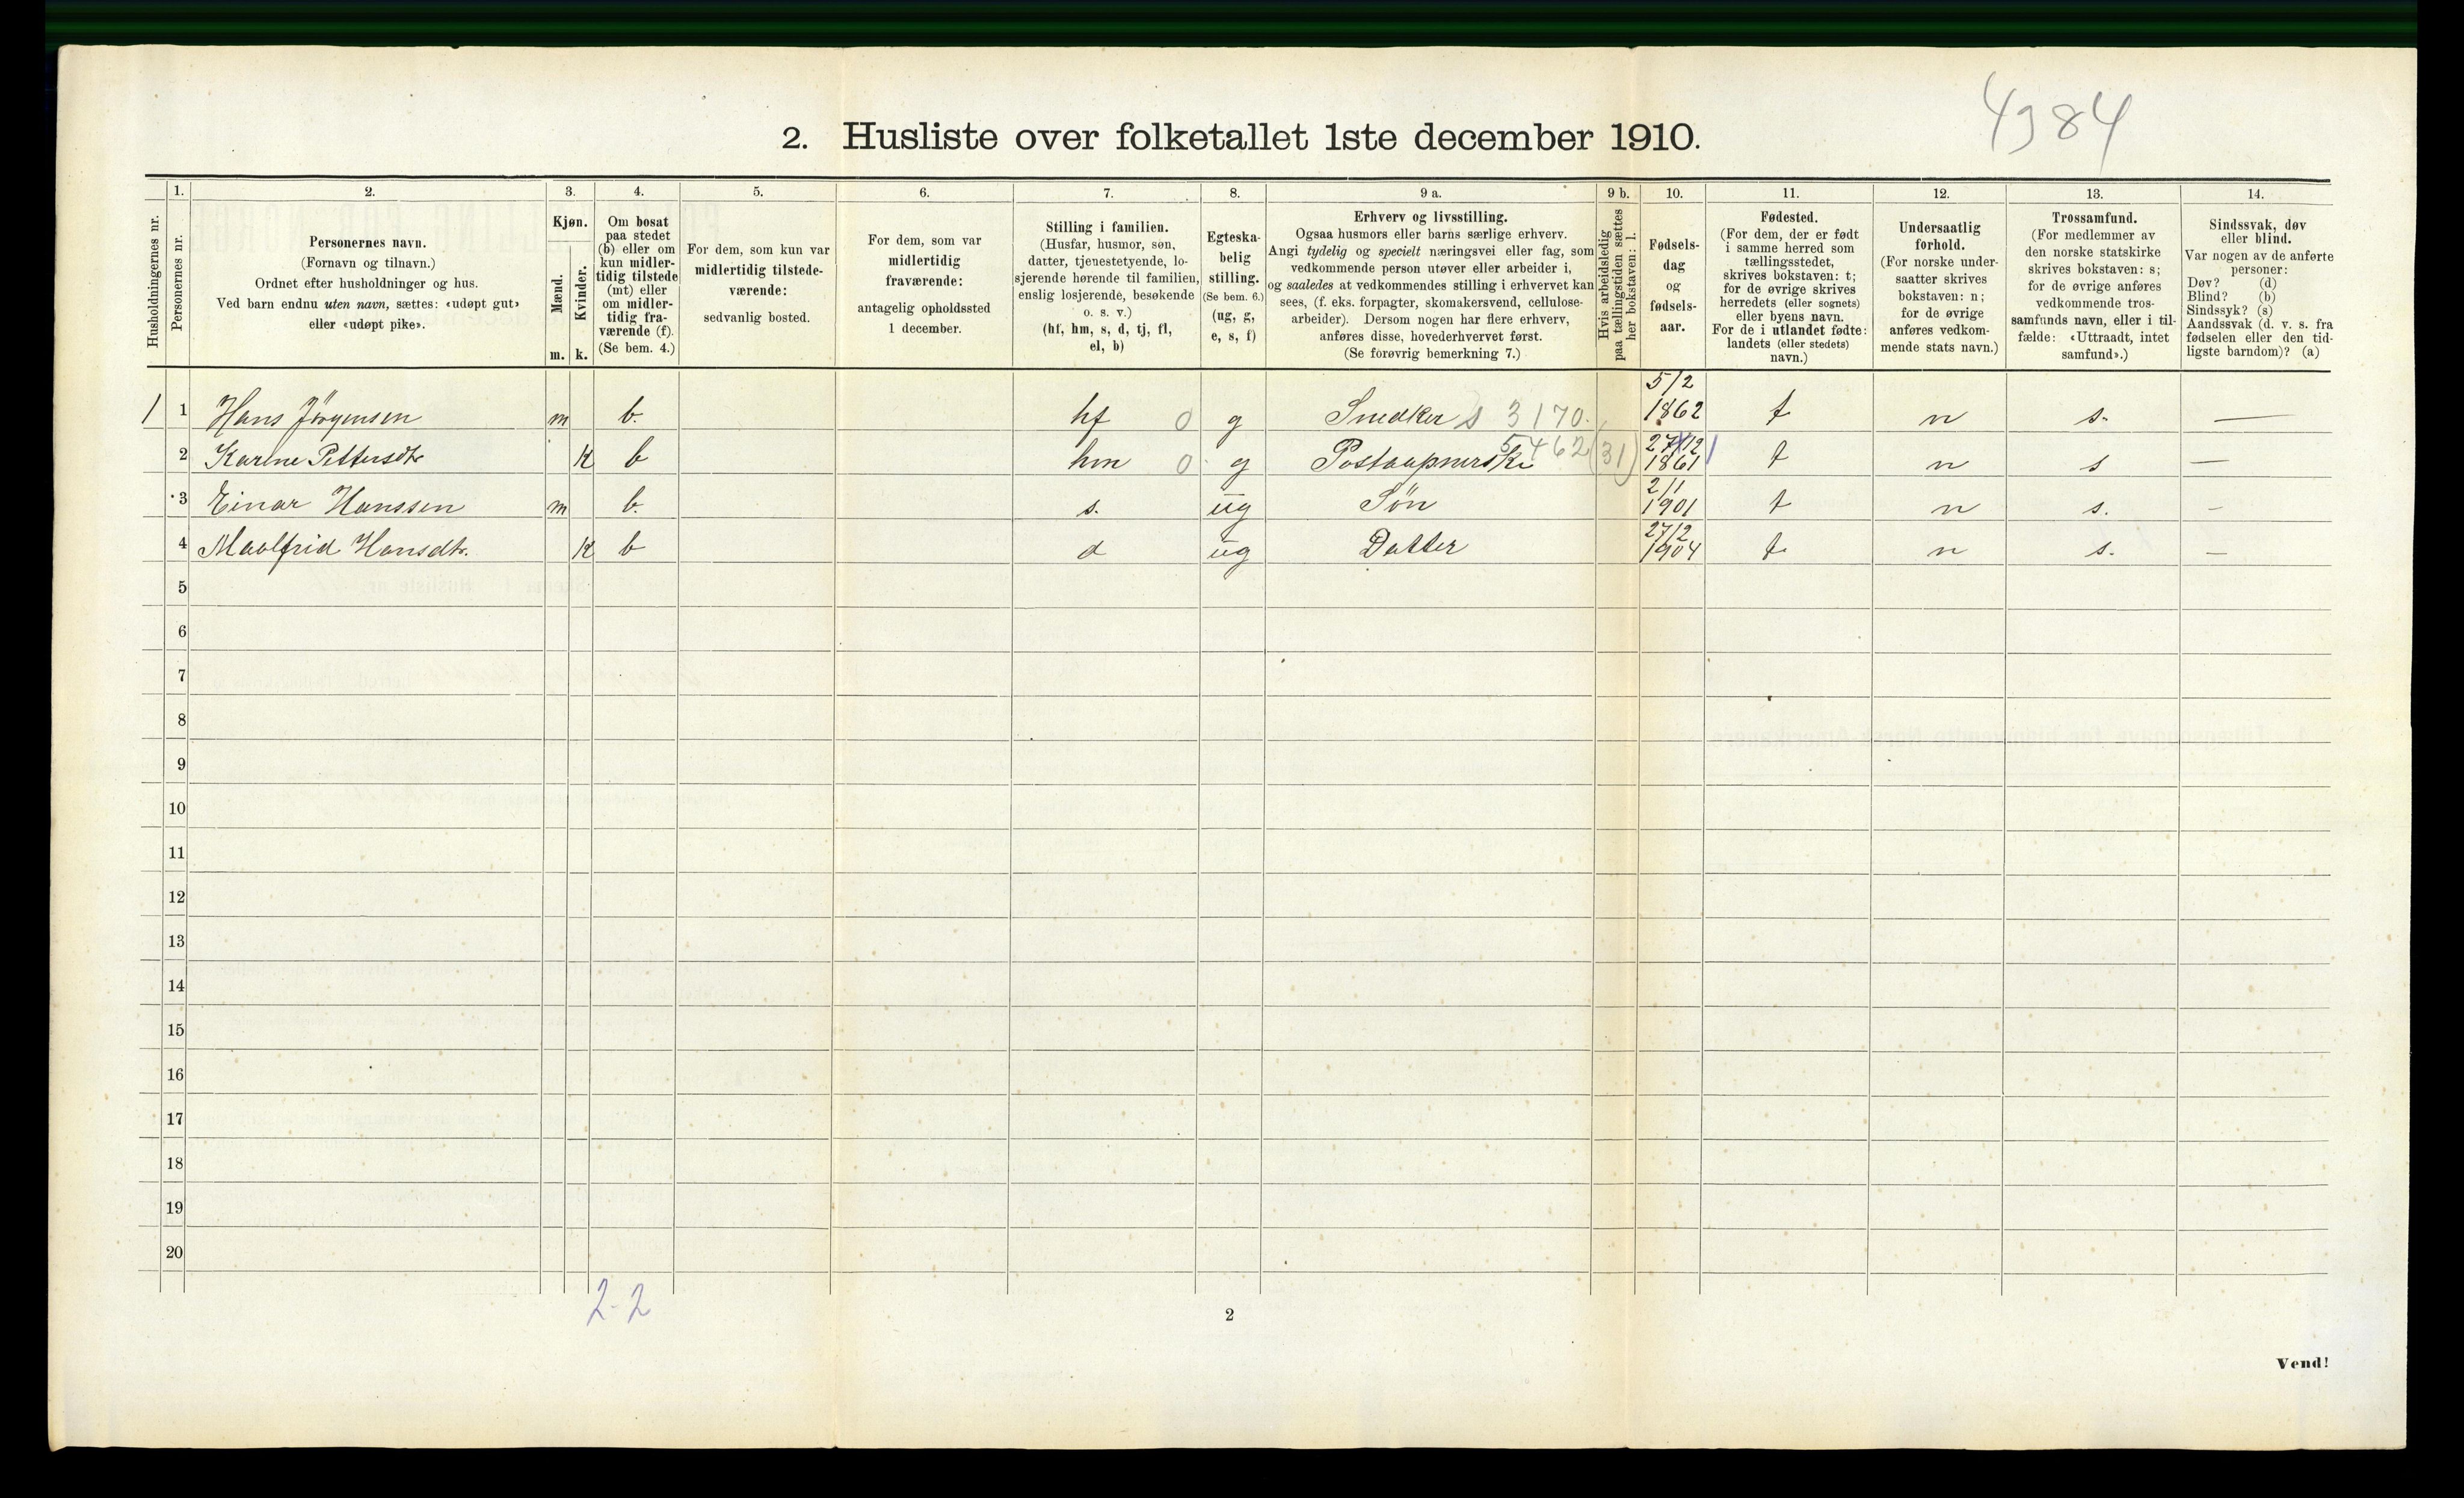 4384
2. Husliste over folketallet 1ste december 1910.
Husholdningernes nr.
1.
Personernes nr.
2.
Personernes navn.
(Fornavn og tilnavn.)
Ordnet efter husholdninger og hus.
Ved barn endnu uten navn, sættes: «udøpt gut»
eller «udøpt pike».
3.
Kjøn.
Mænd.
Kvinder.
m. k.
4.
Om bosat
paa stedet
(b) eller om
kun midler-
tidig tilstede
(mt) eller
om midler-
tidig fra-
værende (f).
(Se bem. 4.)
5.
For dem, som kun var
midlertidig tilstede-
værende:
sedvanlig bosted.
6.
For dem, som var
midlertidig
fraværende:
antagelig opholdssted
1 december.
7.
Stilling i familien.
(Husfar, husmor, søn,
datter, tjenestetyende, lo-
sjerende hørende til familien,
enslig losjerende, besøkende
o. s. v.)
(hf, hm, s, d, tj, fl,
el, b)
8.
Egteska-
belig
stilling.
(Se bem. 6.)
(ug, g,
e, s, f)
9 a.
Erhverv og livsstilling.
Ogsaa husmors eller barns særlige erhverv.
Angi tydelig og specielt næringsvei eller fag, som
vedkommende person utøver eller arbeider i,
og saaledes at vedkommendes stilling i erhvervet kan
sees, (f. eks. forpagter, skomakersvend, cellulose-
arbeider). Dersom nogen har flere erhverv,
anføres disse, hovederhvervet først.
(Se forøvrig bemerkning 7.)
9 b.
Hvis arbeidsledig
paa tællingstiden sættes
her bokstaven: l.
10.
Fødsels-
dag
og
fødsels-
aar.
11.
Fødested.
(For dem, der er født
i samme herred som
tællingsstedet,
skrives bokstaven: t;
for de øvrige skrives
herredets (eller sognets)
eller byens navn.
For de i utlandet fødte:
landets (eller stedets)
navn.)
12.
Undersaatlig
forhold.
(For norske under-
saatter skrives
bokstaven: n;
for de øvrige
anføres vedkom-
mende stats navn.)
13.
Trossamfund.
(For medlemmer av
den norske statskirke
skrives bokstaven: s;
for de øvrige anføres
vedkommende tros-
samfunds navn, eller i til-
fælde: «Uttraadt, intet
samfund».)
14.
Sindssvak, døv
eller blind.
Var nogen av de anførte
personer:
Døv? (d)
Blind? (b)
Sindssyk? (s)
Aandssvak (d. v. s. fra
fødselen eller den tid-
ligste barndom)? (a)
1 1 Hans Jörgensen m b. hf 0 g Snedker s 3170. 5/2 1862 t n s. —
2 Karine Pettersdtr k b hm 0 g Postaapnerske 5462 (31) 27/12 1861 t n s —
3 Einar Hanssen m b. s. ug Sön 2/1 1901 t n s. —
4 Maalfrid Hansdtr. k b d ug Datter 27/2 1904 t n s. —
5
6
7
8
9
10
11
12
13
14
15
16
17
18
19
20
2-2
2
Vend!